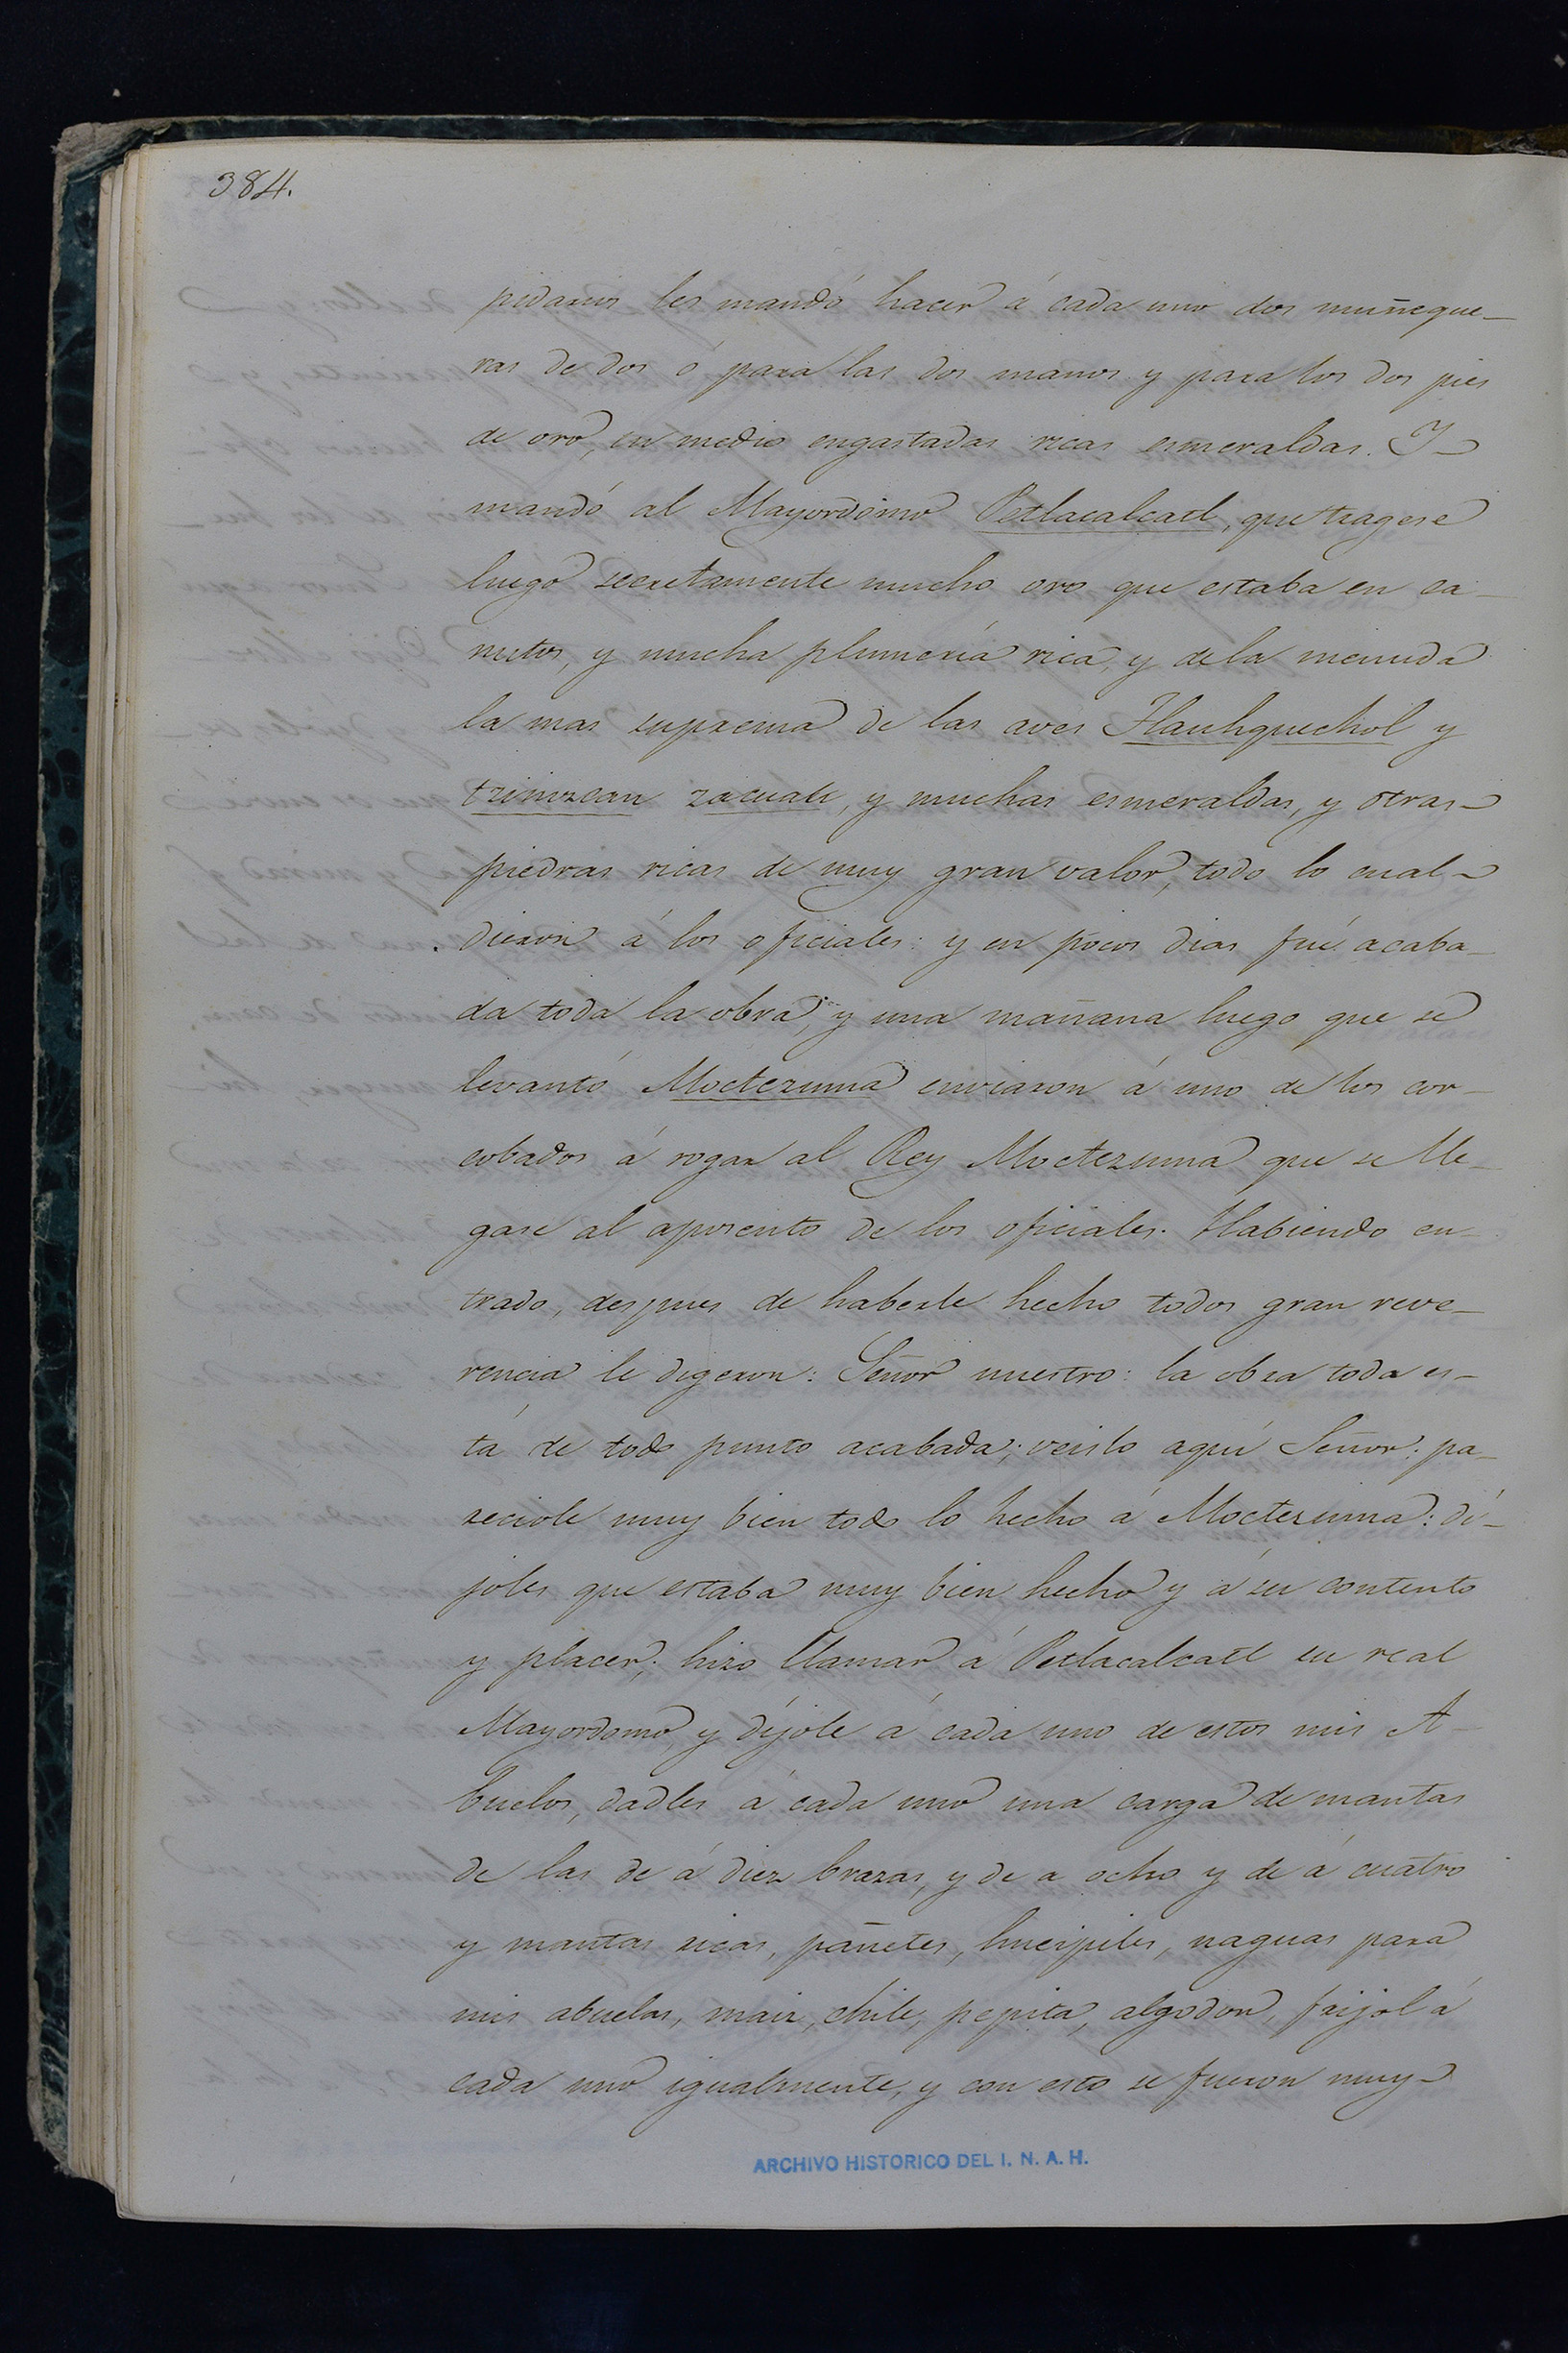 384.
pidarios les mandó hacer á cada uno dos muñeque-
ras de dos ó para las dos manos y para los dos pies
de oro, en medio engastadas ricas esmeraldas. Y
mandó al Mayordomo Petlacalcatl, que tragese
luego secretamente mucho oro que estaba en ca-
nutos, y mucha plumería rica, y de la menuda
la mas suprema de las aves Tlauhquechol y
tzinizcan zacuali, y muchas esmeraldas, y otras
piedras ricas de muy gran valor, todo lo cual
dieron á los oficiales: y en pocos dias fué acaba-
da toda la obra, y una mañana luego que se
levantó Moctezuma enviaron á uno de los cor-
cobados á rogar al Rey Moctezuma que se lle-
gase al aposento de los oficiales. Habiendo en-
trado, despues de haberle hecho todos gran reve-
rencia le digeron: Señor nuestro: la obra toda es-
tá de todo punto acabada; veislo aquí Señor: pa-
reciole muy bien todo lo hecho á Moctezuma: di-
joles que estaba muy bien hecho y á su contento
y placer; hizo llamar á Petlacalcatl su real
Mayordomo, y díjole á cada uno de estos mis A-
buelos, dadles á cada uno una carga de mantas
de las de á diez brazas, y de a ocho y de á cuatro
y mantas ricas, pañetes, hueipiles, naguas para
mis abuelas, maiz, chile, pepita, algodon, frijol á
cada uno igualmente, y con esto se fueron muy
ARCHIVO HISTORICO DEL I. N. A. H.